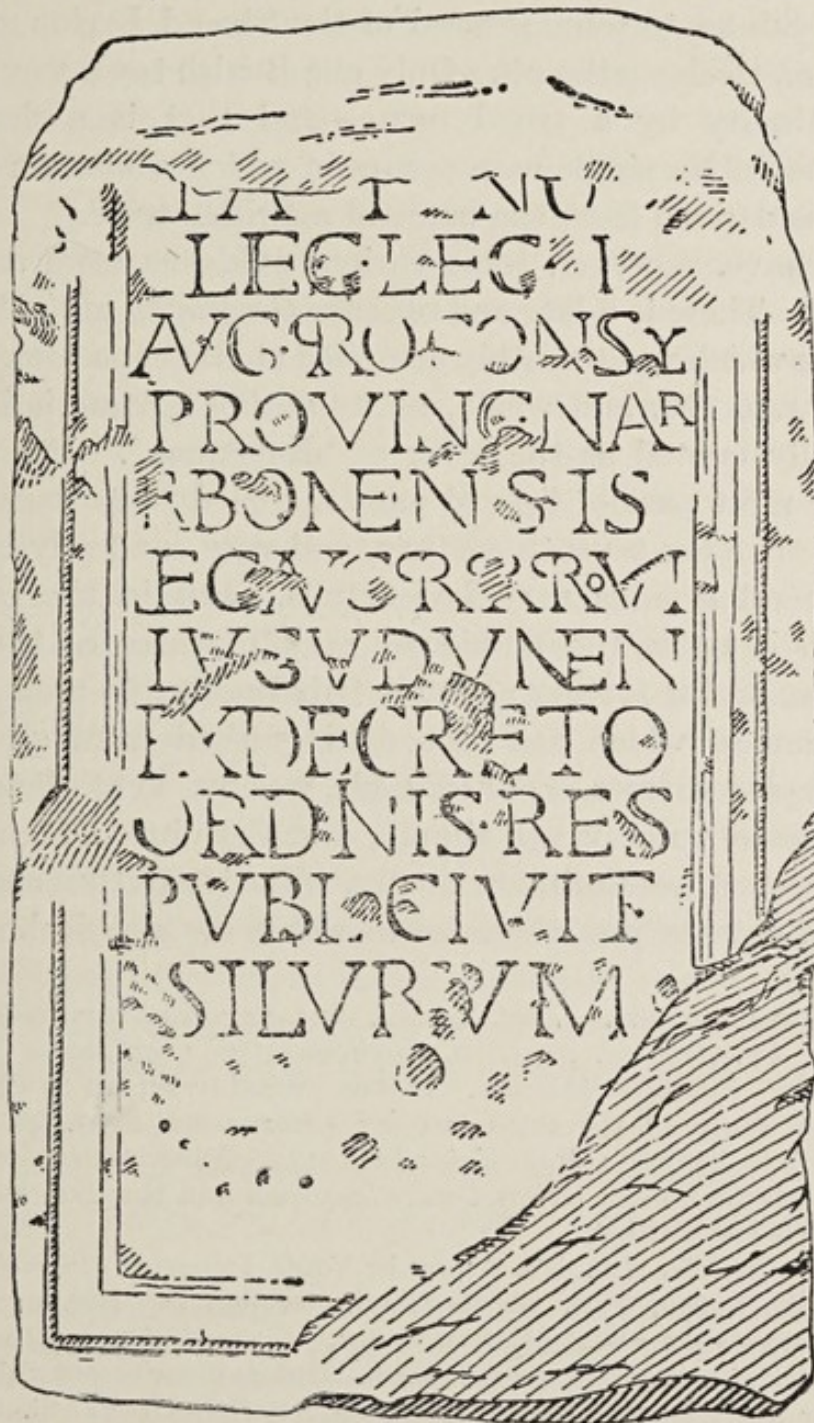 LEG·LEG·I
AVG·PROCONSV
PROVINC·NAR
BONENSIS
LEG·AVG·PR·PR·PROVI
LVGVDVNEN
EX DECRETO
ORDINIS·RES
PVBL·CIVIT
SILVRVM